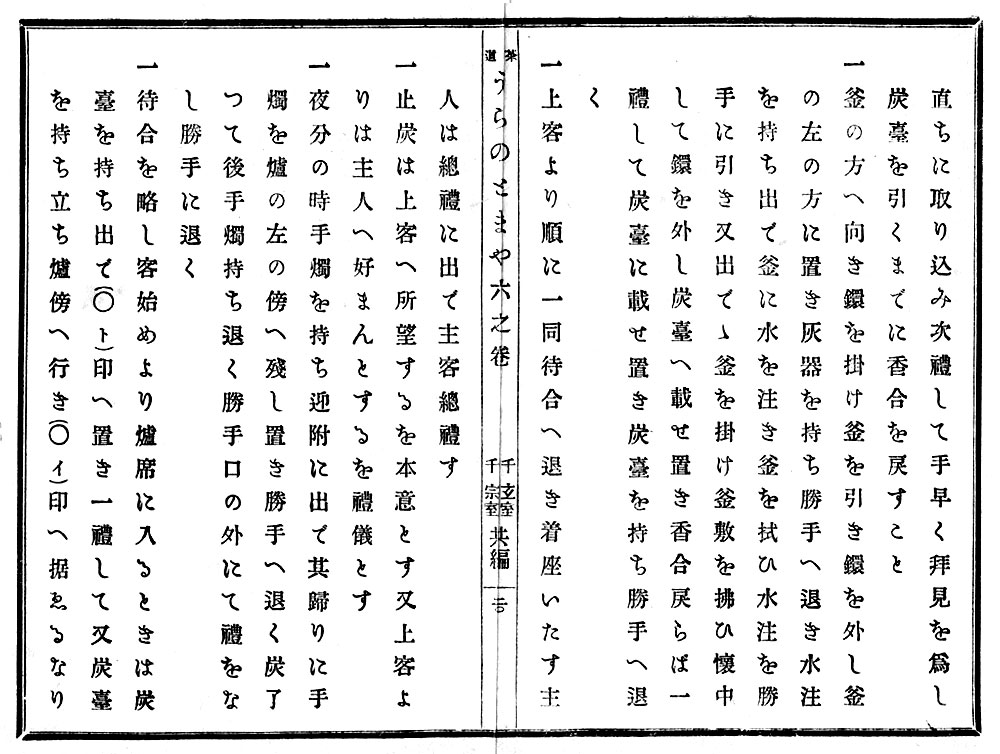 直ちに取り込み次禮して手早く拜見を爲し
炭臺を引くまでに香合を戻すこと
一釜の方へ向き鐶を掛け釜を引き鐶を外し釜
の左の方に置き灰器を持ち勝手へ退き水注
を持ち出で釜に水を注き釜を拭ひ水注を勝
手に引き又出でゝ釜を掛け釜敷を拂ひ懷中
して鐶を外し炭臺へ載せ置き香合戻らば一
禮して炭臺に載せ置き炭臺を持ち勝手へ退
く
一上客より順に一同待合へ退き着座いたす主
茶道うらのとまや六之卷 千玄室 千宗室 共編
人は總禮に出で主客總禮す
一止炭は上客へ所望するを本意とす又上客よ
りは主人へ好まんとするを禮儀とす
一夜分の時手燭を持ち迎附に出で其歸りに手
燭を爐の左の傍へ殘し置き勝手へ退く炭了
つて後手燭持ち退く勝手口の外にて禮をな
し勝手に退く
一待合を略し客始めより爐席に入るときは炭
臺を持ち出で(〇ト)印へ置き一禮して又炭臺
を持ち立ち爐傍へ行き(〇イ)印へ据ゑるなり